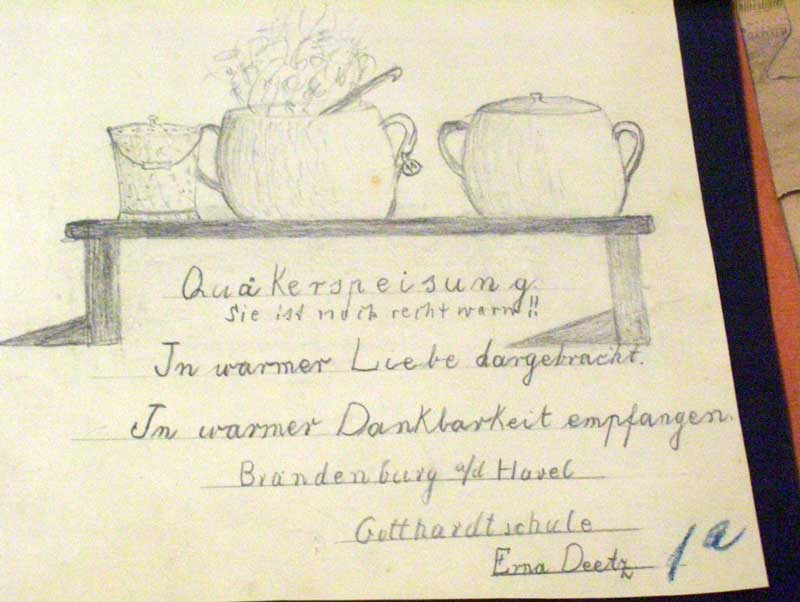 Quäkerspeisung.
Sie ist noch recht warm!!
In warmer Liebe dargebracht.
In warmer Dankbarkeit empfangen.
Brandenburg a/d Havel
Gotthardtschule
Erna Deetz
1a